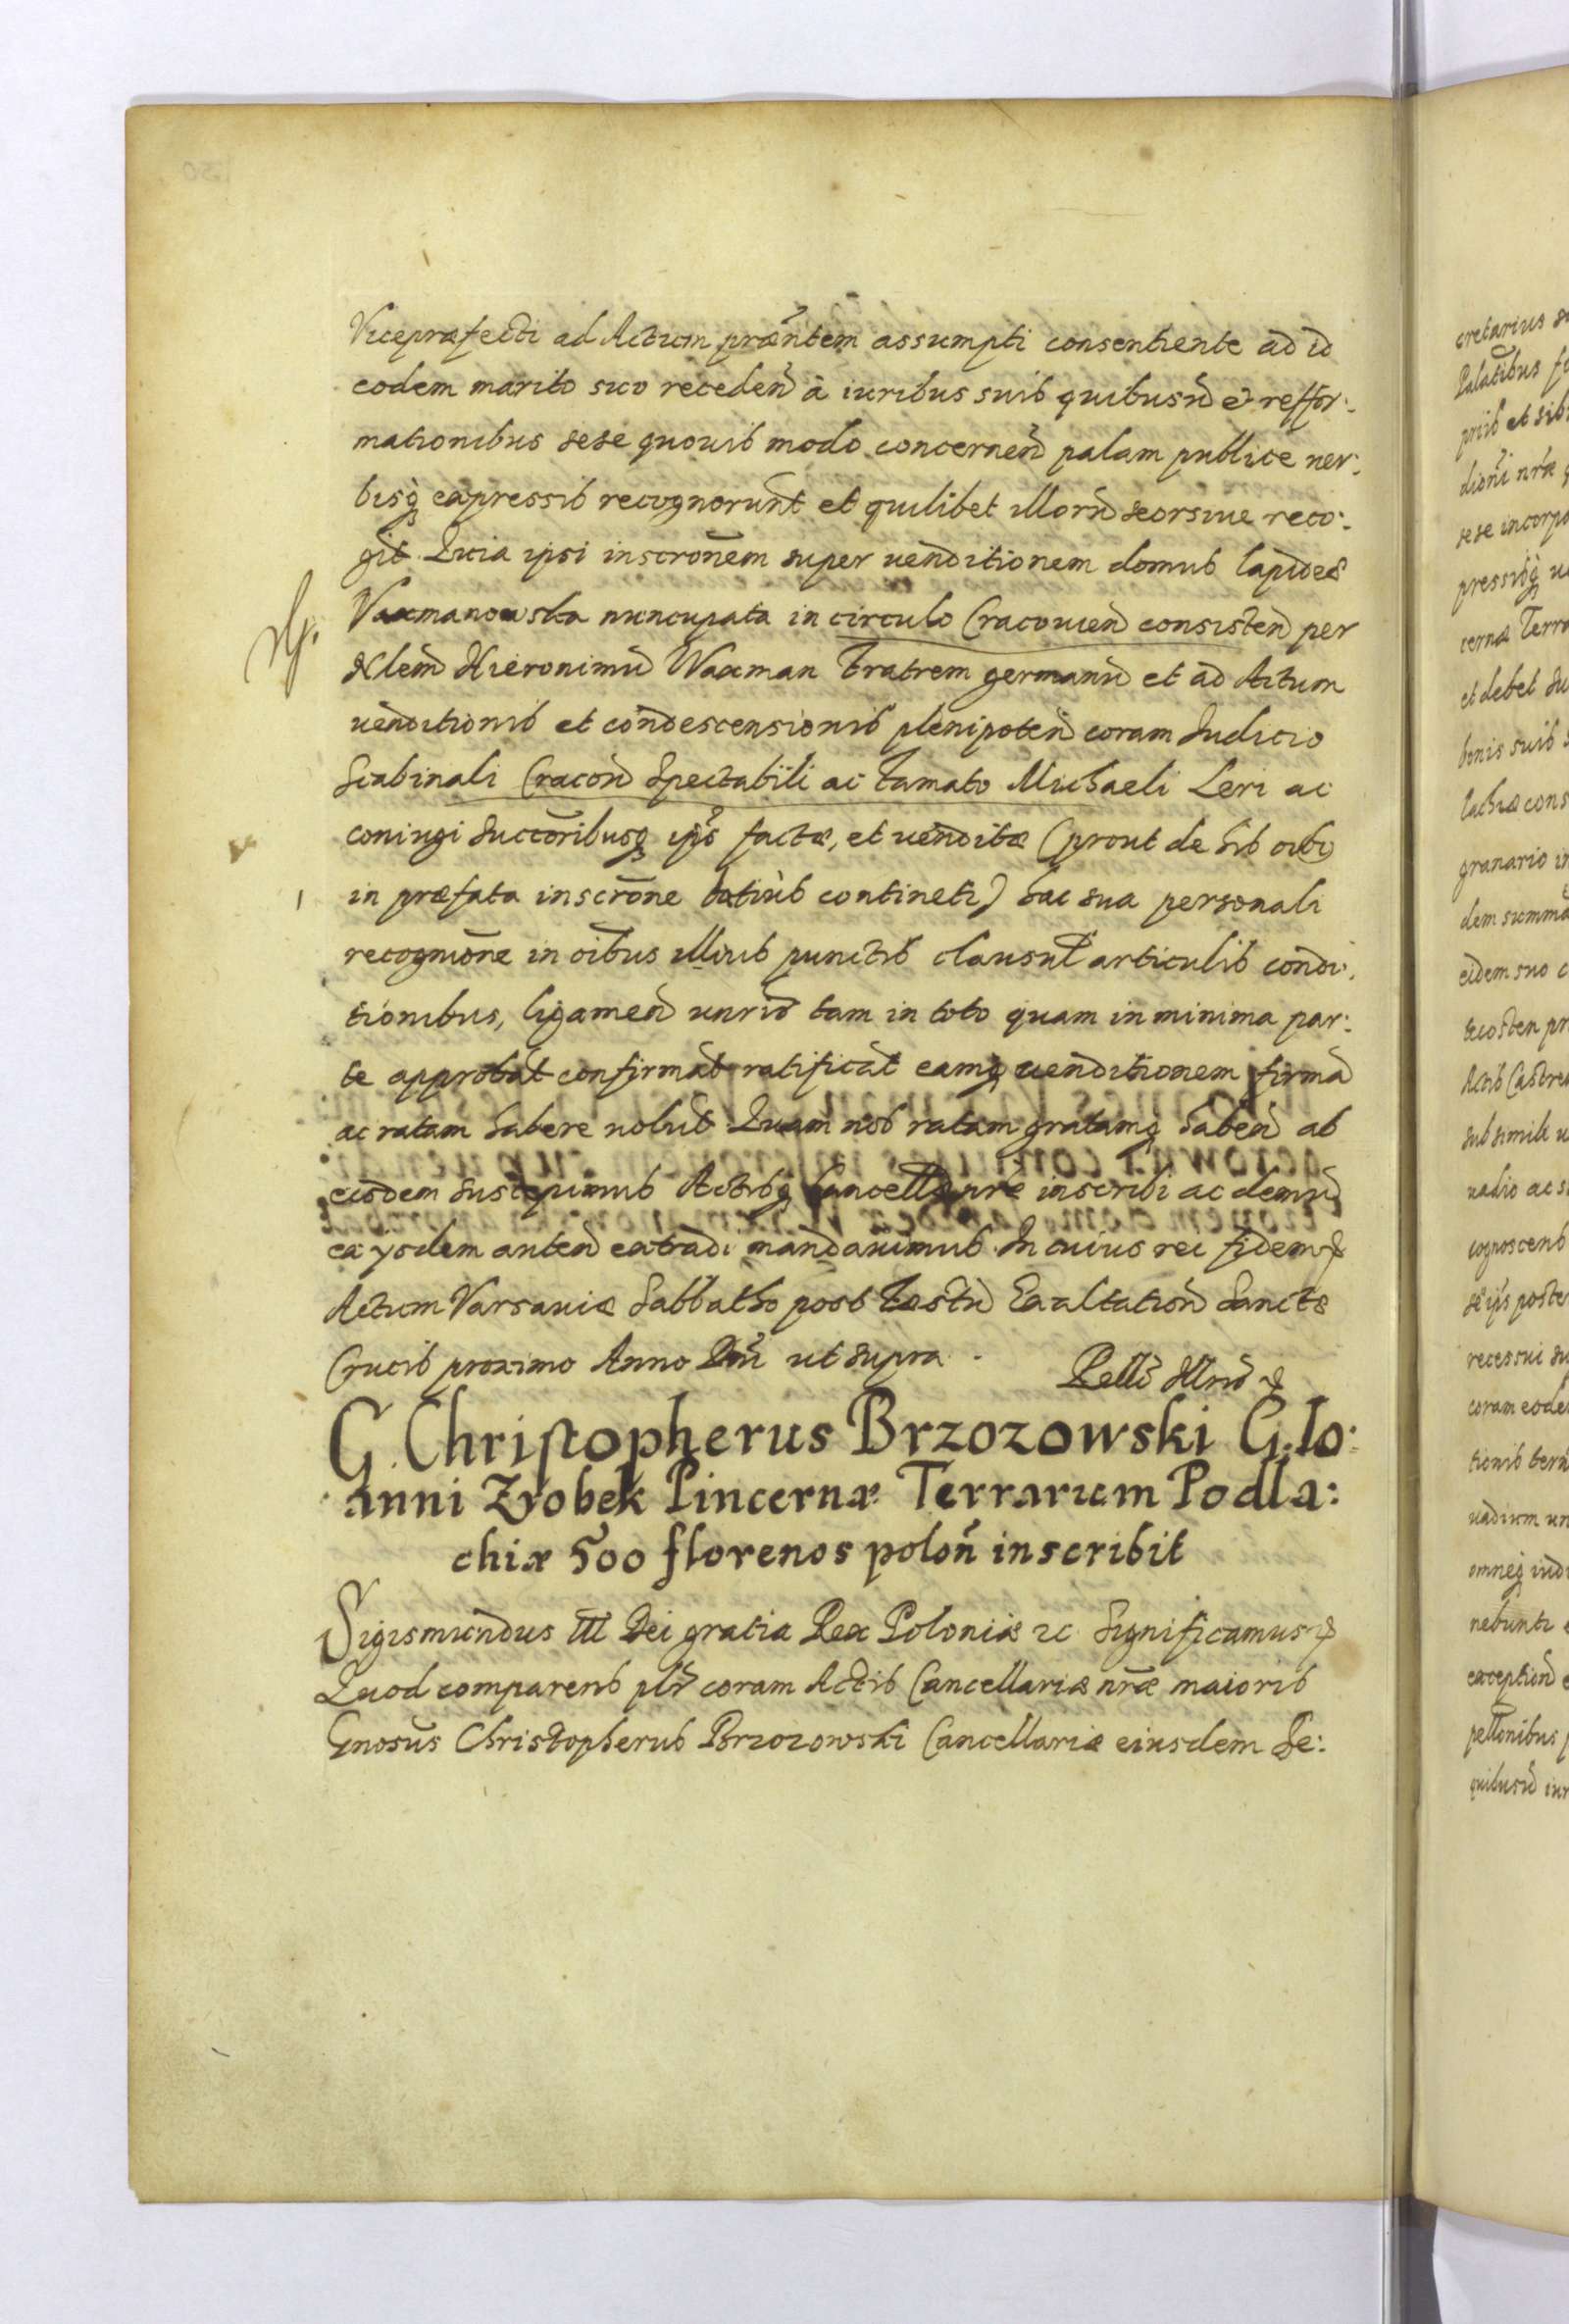 Vicepræfecti ad Actum præñtem assumpti consentiente ad id
eodem marito suo recedeñ à iuribus suis quibusuis & reffor:
mationibus sese quouis modo concerneñ palam publice ver:
bisq expressis recognorunt et quilibet illorũ seorsiue reco:
git Quia ipsi inscronem super uenditionem domus lapideæ
Waxmanowska nuncupata in circulo Cracouieñ consisteñ per
Nlem Hieronimũ Waxman Fratrem germanũ et ad Actum
uenditionis et condescensionis plenipoteñ coram Iudicio
Scabinali Cracoñ Spectabili ac Famato Michaeli Leri ac
coniugi Succoribusq ips factæ, et uenditæ (prout de his oibus
in præfata inscrone latius contineti) hac sua personali
recognione in oibus illius punctis clausul articulis condi:
tionibus, ligameñ uniuersis tam in toto quam in minima par:
te approbat confirmat ratificat eamq uenditionem firmã
ac ratam habere uolut Quam nos ratam gratamq habeñ ab
eisdem suscepimus Actisq Cancell nræ inscribi ac demũ
ex ysdem auteñ extradi mandauimus In cuius rei fidem &
Actum Varsauiæ Sabbatho post Festũ Exaltationis Sanctæ
Crucis proximo Anno Dni ut supra.
G. Christopherus Brzozowski G. Io:
anni Zrobek Pincernæ Terrarum Podla:
chiæ 500 florenos poloñ inscribit
Sigismundus III Dei gratia Rex Poloniæ &c Significamus &
Quod comparens plr coram Actis Cancellariæ nræ maioris
Gnosus Christopherus Brzozowski Cancellariæ eiusdem Se:
cretarius
Palatibus
priis et sibi
dioni nræ
sese incorpo
pressisq
cernæ Terra
et debet
bonis suis
lachiæ cons
granario in
dem summã
eidem suo
Actis Castre
sub simili
uadio ac
cognoscens
se ips poste
recessui
coram eode
tionis
uadium
omneq iudi
exceptioñ
pellonibus
quibusuis iur